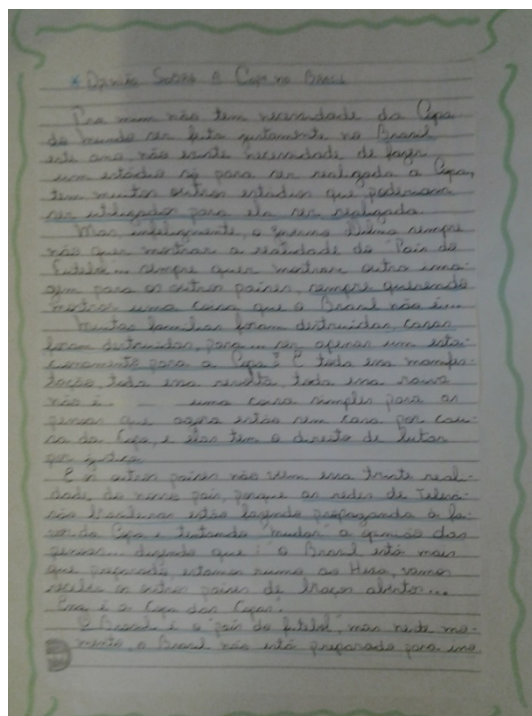 * Opinião Sobre a Copa no Brasil
Pra mim não tem necessidade da Copa
do mundo ser feita justamente no Brasil
este ano, não existe necessidade de fazer
um estádio só para ser realizada a Copa,
tem muitos outros estádios que poderiam
ser utilizados para ela ser realizada.
Mas, infelizmente, o governo Dilma sempre
não quer mostrar a realidade do "País do
Futebol"... sempre quer mostrar outra ima-
gem para os outros países, sempre querendo
mostrar uma coisa que o Brasil não é...
Muitas famílias foram destruídas, casas
foram destruídas, para... ser apenas um esta-
cionamento para a Copa? E toda essa manifes-
tação, toda essa revolta, toda essa raiva
não é uma coisa simples para as
pessoas que agora estão sem casa por cau-
sa da Copa, e elas tem o direito de lutar
por justiça.
E os outros países não vêem essa triste reali-
dade, do nosso país, porque as redes de Televi-
são brasileiras estão fazendo propaganda à fa-
vor da Copa e tentando "mudar" a opinião das
pessoas... dizendo que: "o Brasil está mais
que preparado, estamos rumo ao Hexa, vamos
receber os outros países de braços abertos...
Essa é a Copa das Copas".
O Brasil é o "país do futebol", mas neste mo-
mento, o Brasil não está preparado para essa